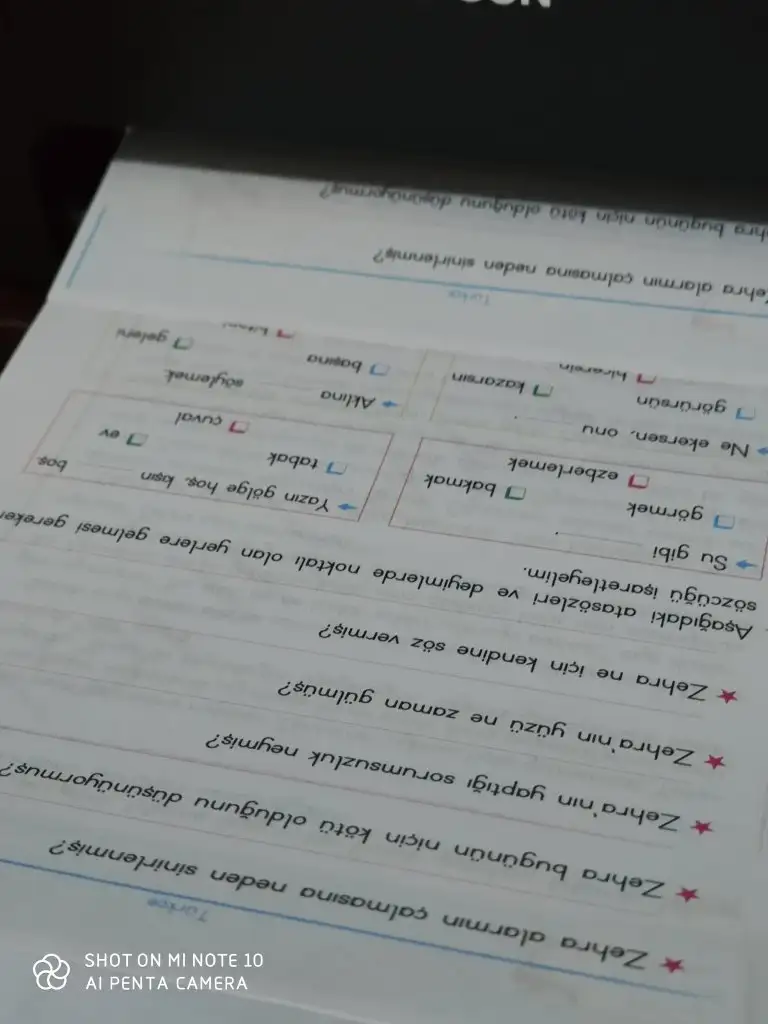 Türkçe
★ Zehra alarmın çalmasına neden sinirlenmiş?
★ Zehra bugünün niçin kötü olduğunu düşünüyormuş?
★ Zehra'nın yaptığı sorumsuzluk neymiş?
★ Zehra'nın yüzü ne zaman gülmüş?
★ Zehra ne için kendine söz vermiş?
Aşağıdaki atasözleri ve deyimlerde noktalı olan yerlere gelmesi gereken
sözcüğü işaretleyelim.
Su gibi ______.
görmek
bakmak
ezberlemek
Yazın gölge hoş, kışın ______ boş.
tabak
ev
çuval
Ne ekersen, onu ______.
görürsün
kazarsın
Aklına ______ söylemek
başına
geleni
Türkçe
Zehra alarmın çalmasına neden sinirlenmiş?
bugünün niçin kötü olduğunu düşünüyormuş?
SHOT ON MI NOTE 10
AI PENTA CAMERA